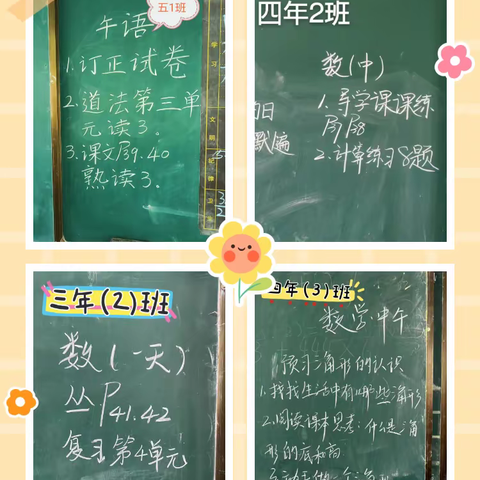 五1班
午语
1.订正试卷
2.道法第三单
元读3.
3.课文P39.40
熟读3.
学习
文明
纪律
四年2班
数(中)
1.导学课课练
P7,P8
2.计算练习8题
默
三年(2)班
数(一天)
丛P41.42
复习第4单元
四年(3)班
数学中午
预习三角形的认识
1.找找生活中有哪些三角形
2.阅读课本思考:什么是三角
形的底和高